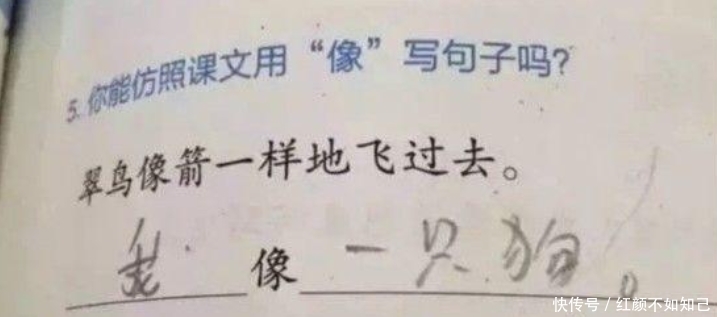 5. 你能仿照课文用“像”写句子吗?
翠鸟像箭一样地飞过去。
我像一只狗。
快传号/红颜不如知己